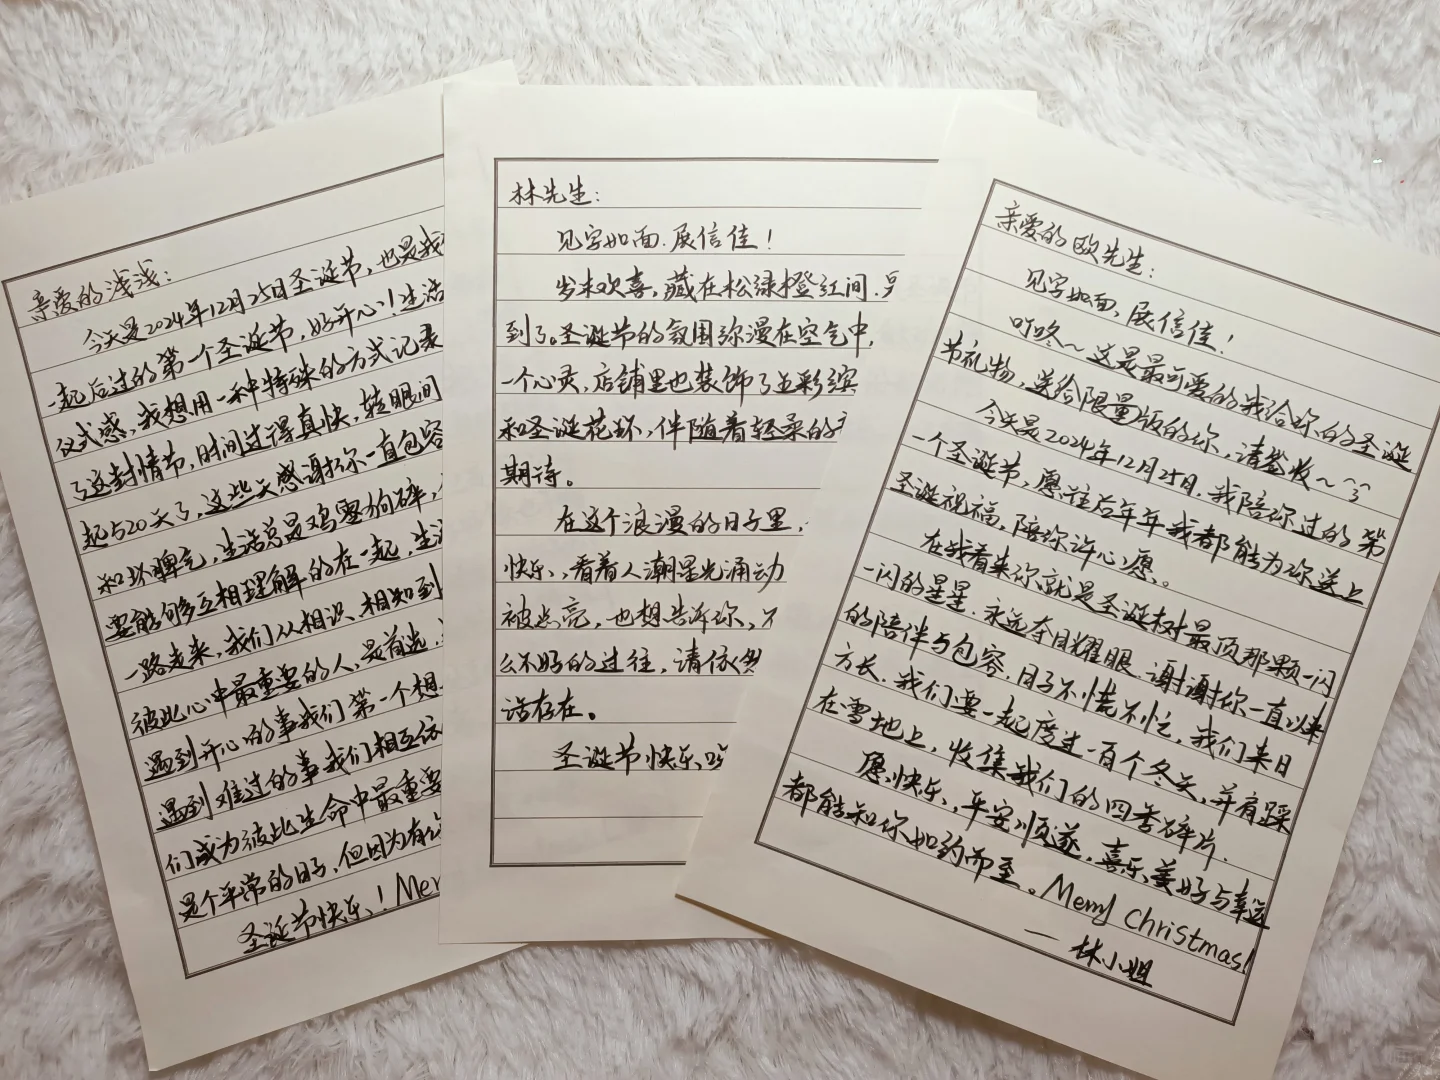 亲爱的浅浅：
今天是2024年12月25日圣诞节，也是我
一起后过的第一个圣诞节，好开心！生活
仪式感，我想用一种特殊的方式记录
了这封情书，时间过得真快，转眼间
起520天了，这些天感谢你一直包容
和坏脾气，生活总是鸡零狗碎，
要能够互相理解的在一起，生
一路走来，我们从相识、相知到
彼此心中最重要的人，是首选，
遇到开心的事我们第一个想
遇到难过的事我们相互依
们成为彼此生命中最重要
是个平常的日子，但因为有
圣诞节快乐！Mer
林先生：
见字如面，展信佳！
岁末欢喜，藏在松绿橙红间，
到了。圣诞节的氛围弥漫在空气中，
一个心灵，店铺里也装饰了五彩缤
和圣诞花环，伴随着轻柔的
期待。
在这个浪漫的日子里，
快乐，看着人潮星光涌动
被点亮，也想告诉你，不
么不好的过往，请依然
话存在。
圣诞节快乐
亲爱的欧先生：
见字如面，展信佳！
叮咚～这是最可爱的我给你的圣诞
节礼物，送给限量版的你，请签收～
今天是2024年12月25日，我陪你过的第
一个圣诞节，愿往后年年我都能为你送上
圣诞祝福，陪你许心愿。
在我看来你就是圣诞树最顶那颗一闪
一闪的星星，永远夺目耀眼，谢谢你一直以来
的陪伴与包容，日子不慌不忙，我们来日
方长，我们要一起度过一百个冬天，并肩踩
在雪地上，收集我们的四季碎片，
愿快乐，平安顺遂，喜乐，美好与幸运
都能和你如约而至。Merry Christmas!
—林小姐